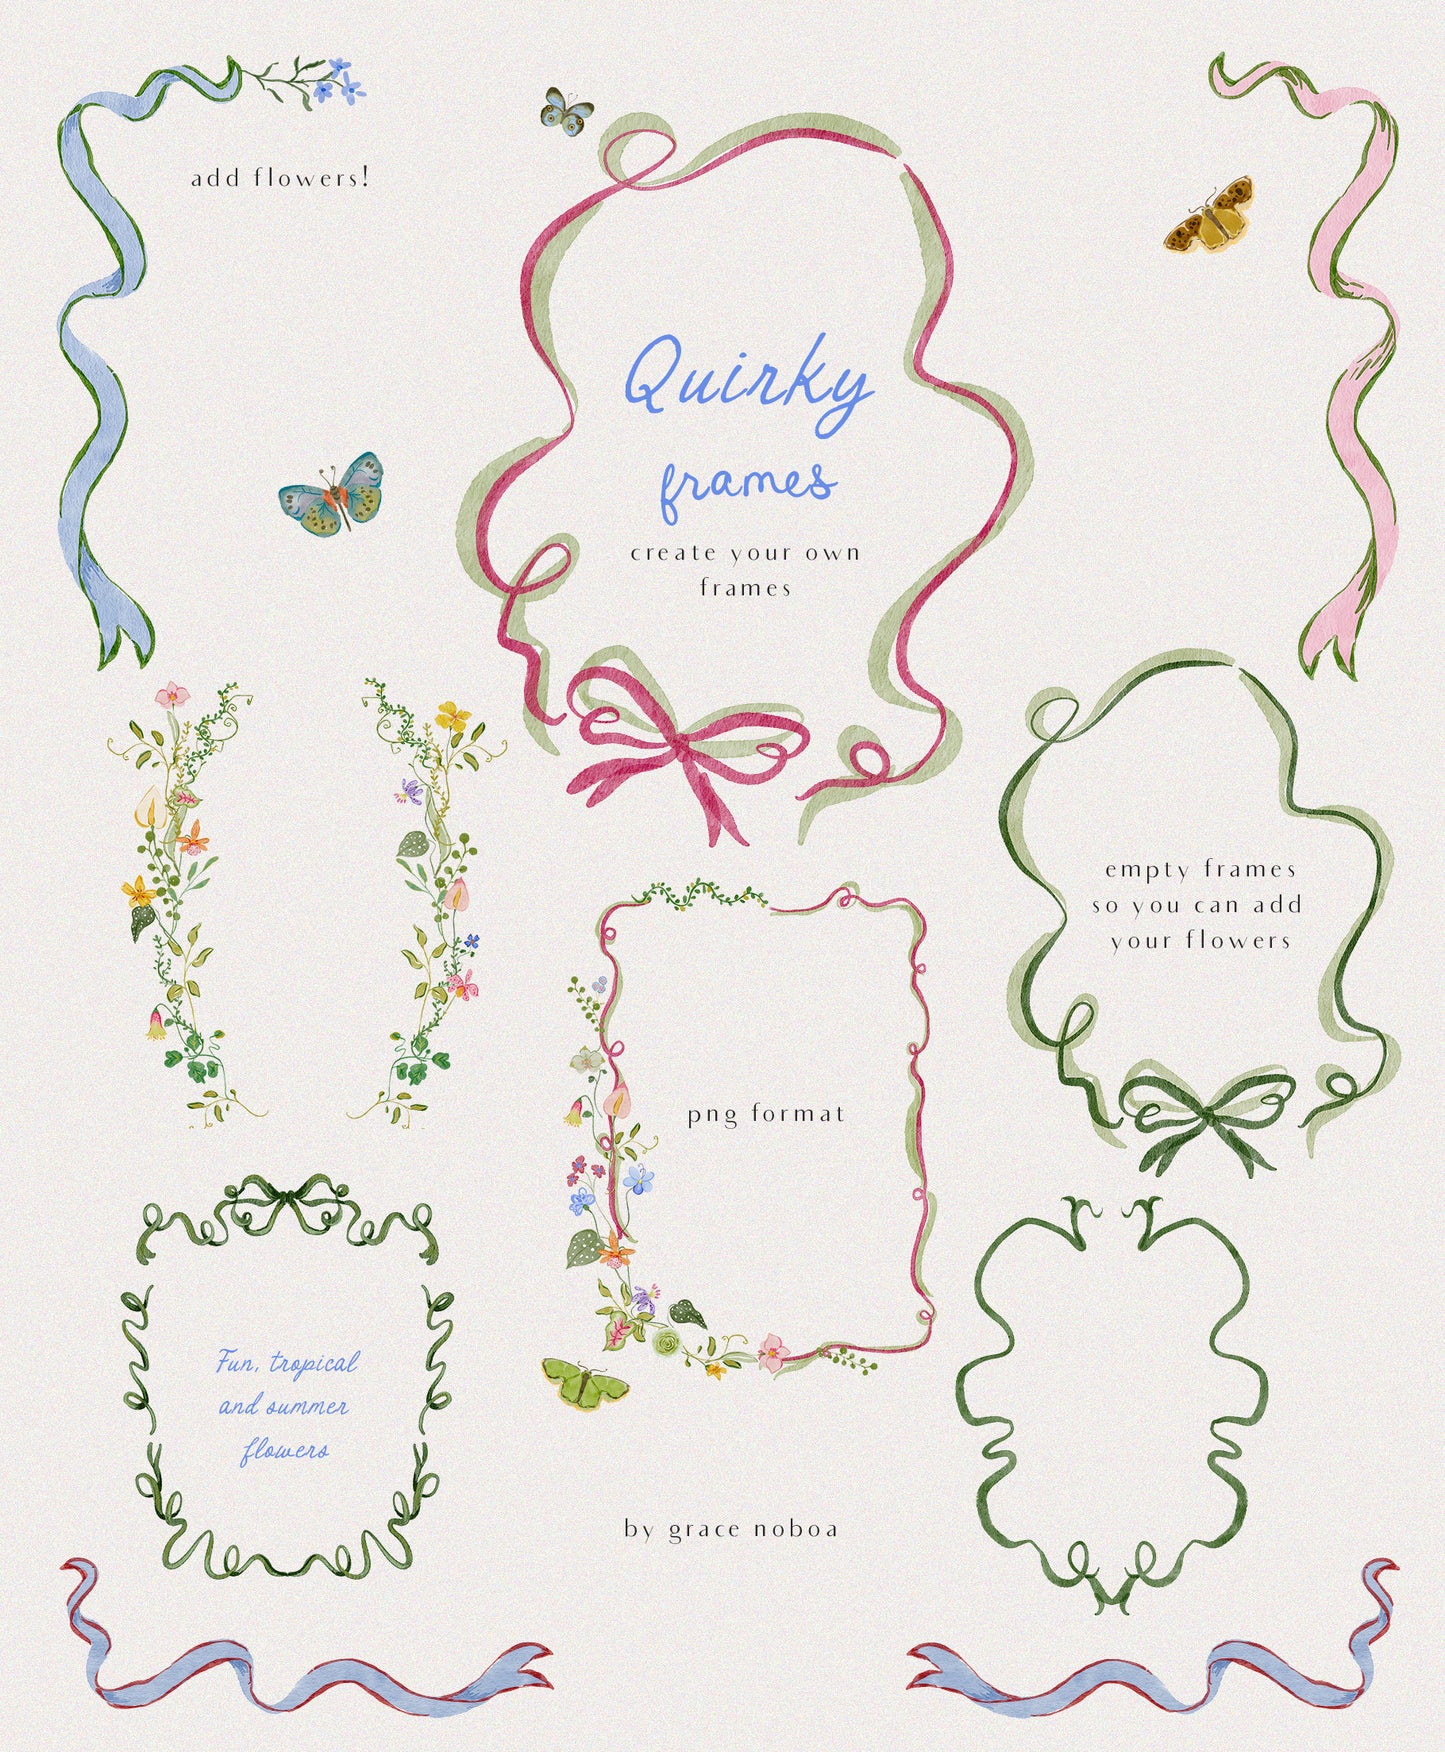 add flowers!
Quirky
frames
create your own
frames
empty frames
so you can add
your flowers
png format
Fun, tropical
and summer
flowers
by grace noboa